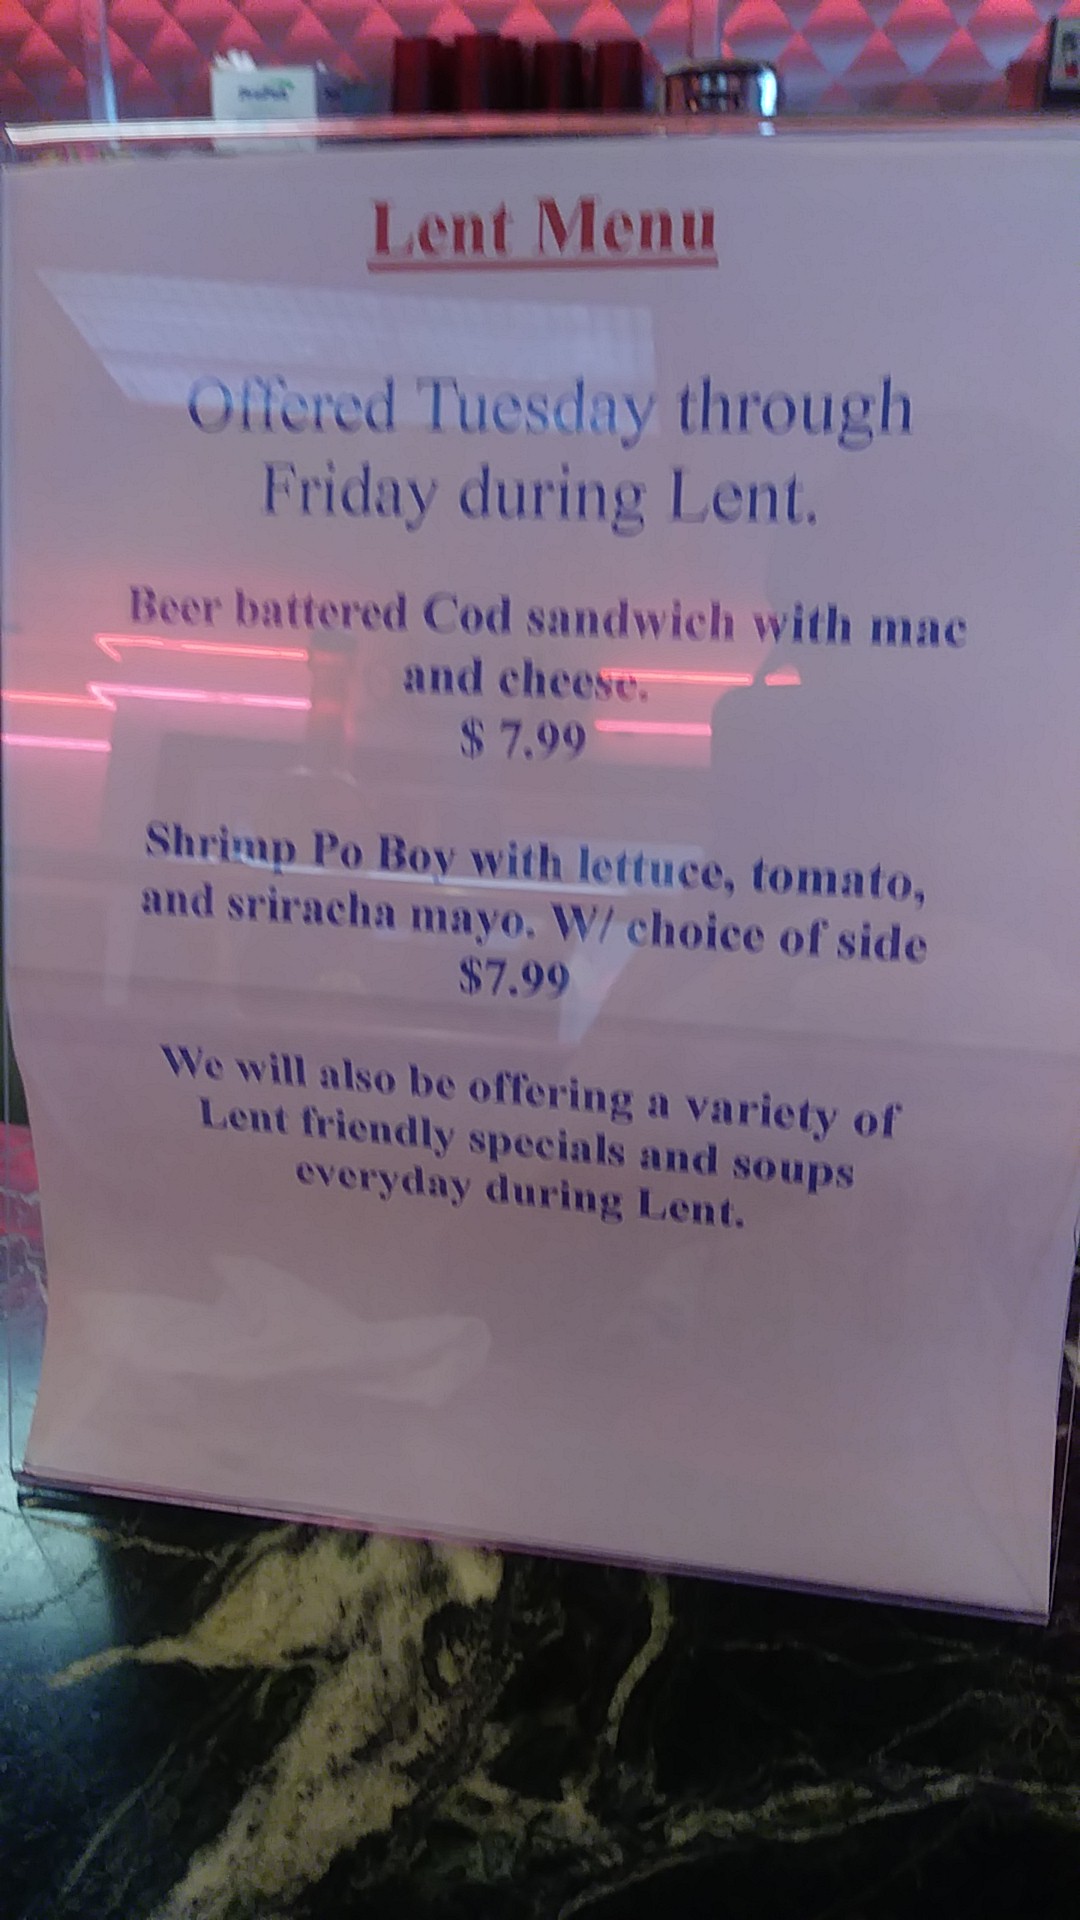 Lent Menu
Offered Tuesday through
Friday during Lent.
Beer battered Cod sandwich with mac
and cheese.
$ 7.99
Shrimp Po Boy with lettuce, tomato,
and sriracha mayo. W/ choice of side
$7.99
We will also be offering a variety of
Lent friendly specials and soups
everyday during Lent.